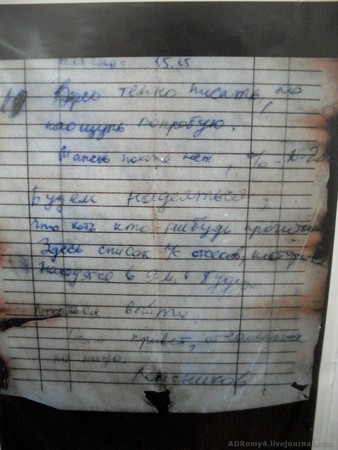 15.15
Здесь темно писать, но
наощупь попробую.
Шансов похоже нет, % 10-20
Будем надеяться,
что хоть кто-нибудь прочитает
Здесь список л/с отсеков, которые
находятся в 9-м и
Всем привет, отчаиваться
не надо.
Колесников
ADRomy4.livejournal.com